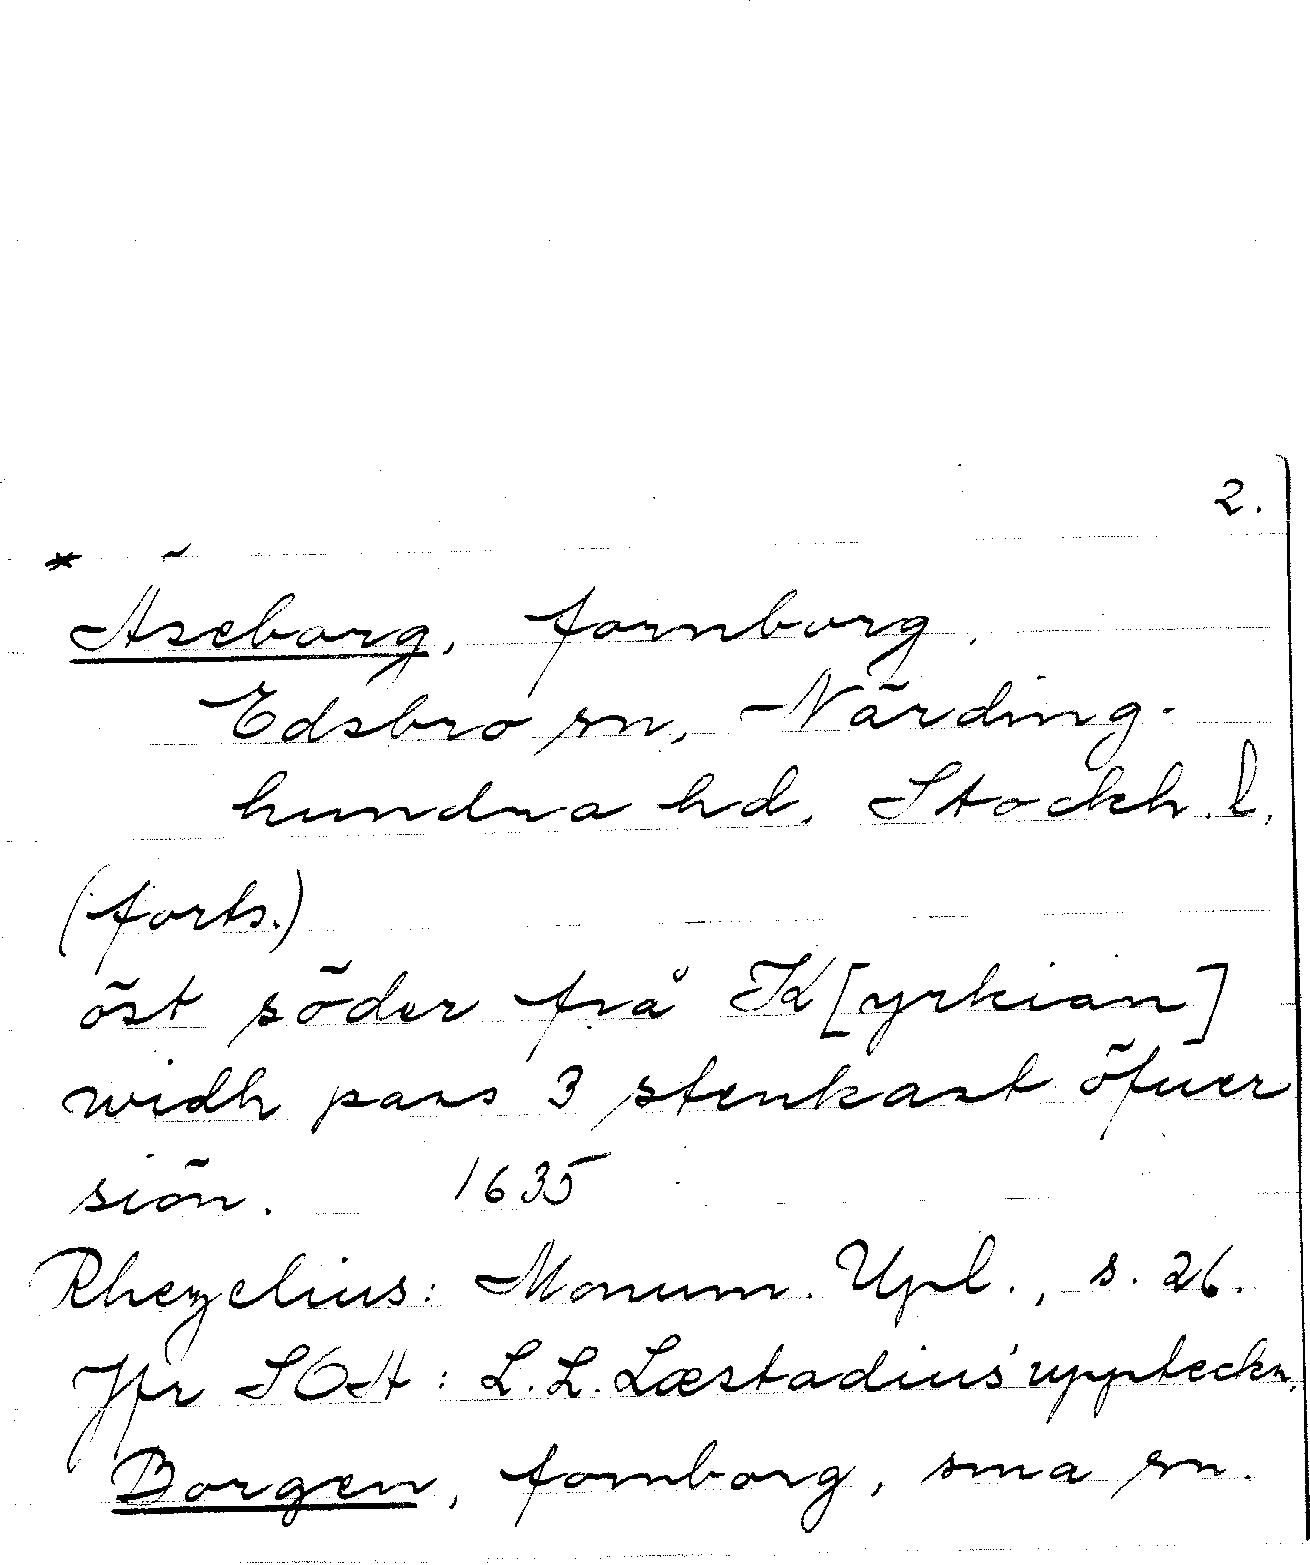 2.
*
Äseborg, fornborg.
Edsbro sn, Närding-
hundra hd, Stockh. l.
(forts.)
öst söder frå K[yrkian]
widh pass 3 stenkast öfuer
siön. 1635
Rhezelius: Monum. Upl., s. 26.
Jfr SOA: L.L. Læstadius' uppteckn.
Borgen, fornborg, sma sn.